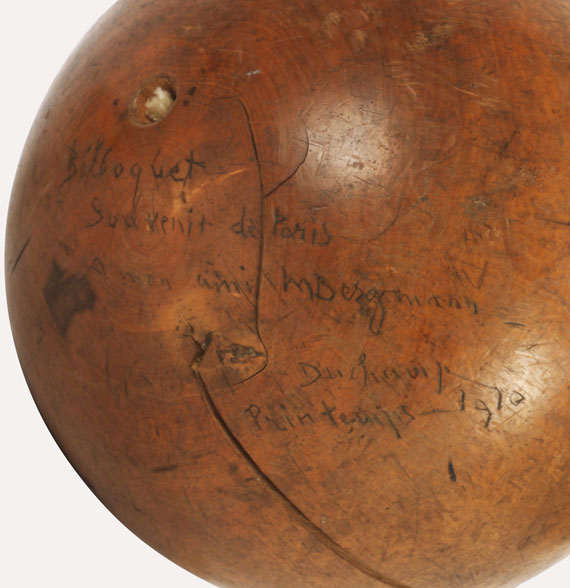 Bilboquet
Souvenir de Paris
A mon ami M Bergmann
Duchamp
Printemps – 1910